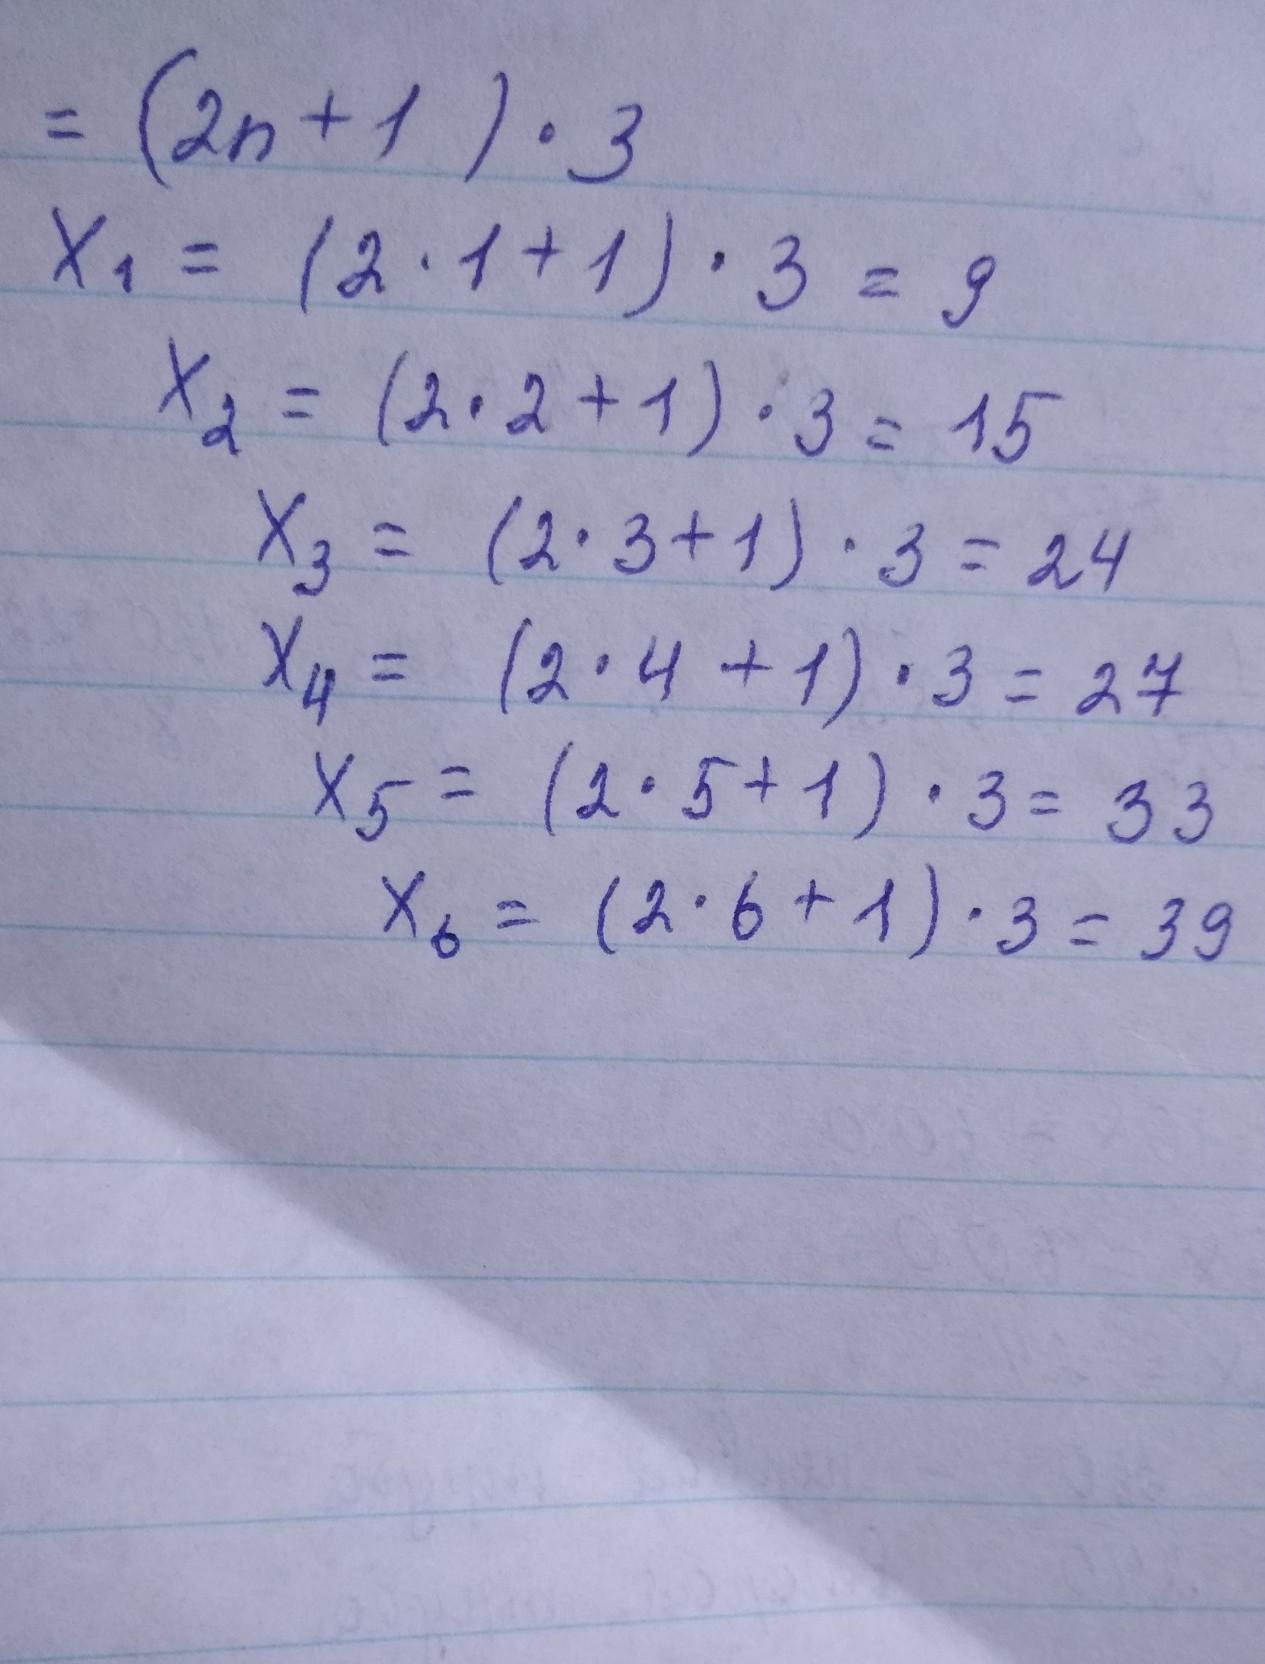 = (2n + 1) · 3
x₁ = (2 · 1 + 1) · 3 = 9
x₂ = (2 · 2 + 1) · 3 = 15
x₃ = (2 · 3 + 1) · 3 = 24
x₄ = (2 · 4 + 1) · 3 = 27
x₅ = (2 · 5 + 1) · 3 = 33
x₆ = (2 · 6 + 1) · 3 = 39